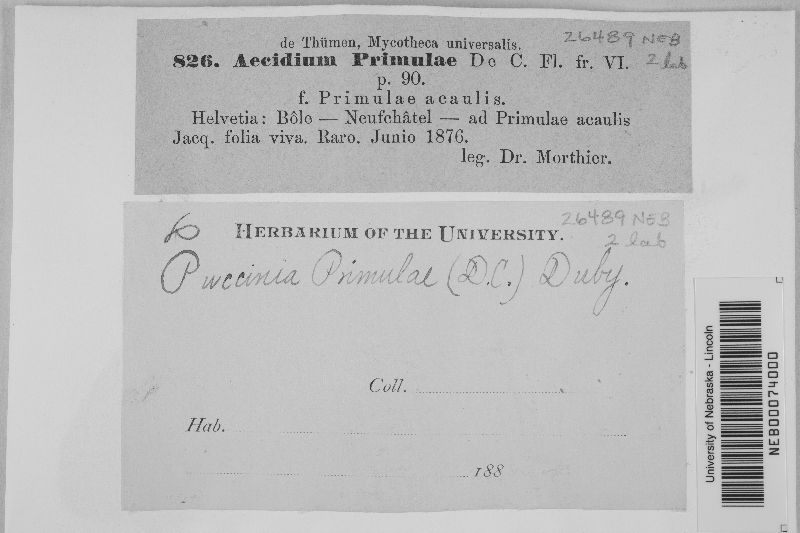 de Thümen, Mycotheca universalis. 26489 NEB
826. Aecidium Primulae De C. Fl. fr. VI. 2 lab
p. 90.
f. Primulae acaulis.
Helvetia: Bôle — Neufchâtel — ad Primulae acaulis
Jacq. folia viva. Raro. Junio 1876.
leg. Dr. Morthier.
26489 NEB
HERBARIUM OF THE UNIVERSITY.
2 lab
Puccinia Primulae (D.C.) Duby.
Coll.
Hab.
188
University of Nebraska - Lincoln
NEB00074000